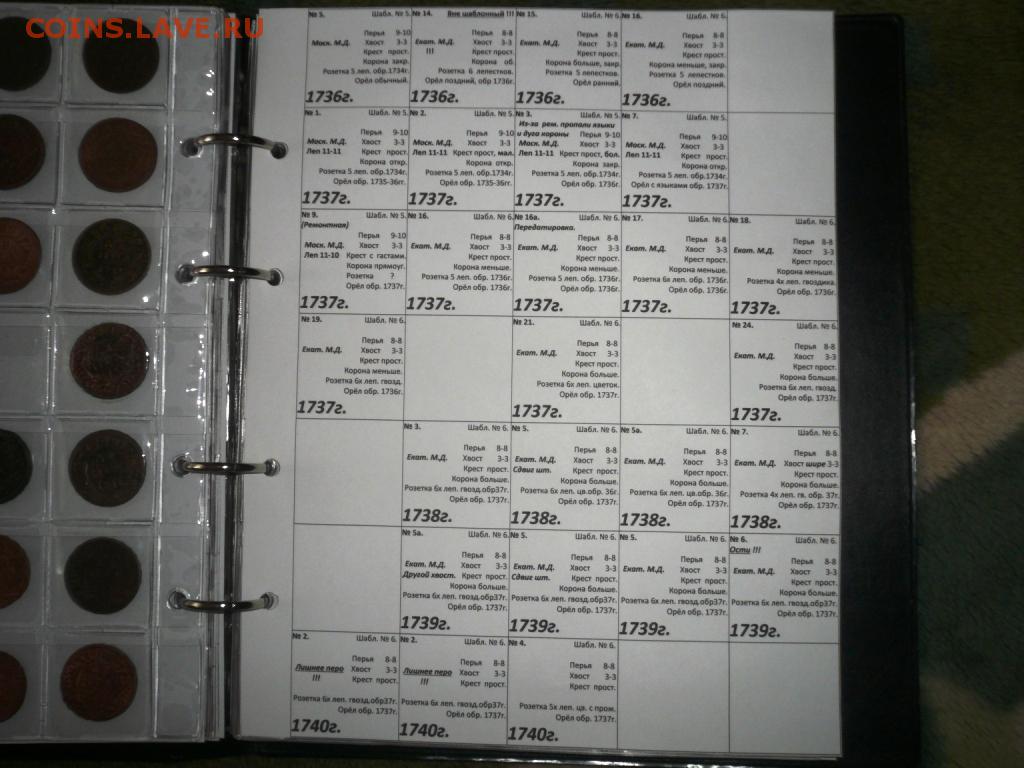 COINS.LAVE.RU
№ 5. Шабл. № 5.
Перья 9-10
Моск. М.Д. Хвост 3-3
Крест прост.
Корона закр.
Розетка 5 леп. обр.1734г.
Орёл обычный.
1736г.
№ 14. Вне шаблонный !!!
Перья 8-8
Екат. М.Д. Хвост 3-3
!!! Крест прост.
Корона об.
Розетка 6 лепестков.
Орёл поздний, обр 1736г.
1736г.
№ 15. Шабл. № 6.
Перья 8-8
Екат. М.Д. Хвост 3-3
Крест прост.
Корона больше, закр.
Розетка 5 лепестков.
Орёл ранний.
1736г.
№ 16. Шабл. № 6.
Перья 8-8
Екат. М.Д. Хвост 3-3
Крест прост.
Корона меньше, закр.
Розетка 5 лепестков.
Орёл поздний.
1736г.
№ 1. Шабл. № 5.
Перья 9-10
Моск. М.Д. Хвост 3-3
Леп 11-11 Крест прост.
Корона откр.
Розетка 5 леп. обр.1734г.
Орёл обр. 1735-36гг.
1737г.
№ 2. Шабл. № 5.
Перья 9-10
Моск. М.Д. Хвост 3-3
Леп 11-11 Крест прост, мал.
Корона откр.
Розетка 5 леп. обр.1734г.
Орёл обр. 1735-36гг.
1737г.
№ 3. Шабл. № 5.
Из-за рем. пропали языки
и дуга короны Перья 9-10
Моск. М.Д. Хвост 3-3
Леп 11-11 Крест прост, бол.
Корона закр.
Розетка 5 леп. обр.1734г.
Орёл обр. 1736г.
1737г.
№ 7. Шабл. № 5.
Перья 9-10
Моск. М.Д. Хвост 3-3
Леп 11-11 Крест прост.
Корона откр.
Розетка 5 леп. обр.1734г.
Орёл с языками обр. 1737г.
1737г.
№ 9. Шабл. № 5.
(Ремонтная)
Перья 9-10
Моск. М.Д. Хвост 3-3
Леп 11-10 Крест с гастами.
Корона прямоуг.
Розетка ?
Орёл обр. 1737г.
1737г.
№ 16. Шабл. № 6.
Перья 8-8
Екат. М.Д. Хвост 3-3
Крест прост.
Корона меньше.
Розетка 5 леп. обр. 1736г.
Орёл обр. 1736г.
1737г.
№ 16а. Шабл. № 6.
Передатировка.
Перья 8-8
Екат. М.Д. Хвост 3-3
Крест прост.
Корона меньше.
Розетка 5 леп. обр. 1736г.
Орёл обр. 1736г.
1737г.
№ 17. Шабл. № 6.
Перья 8-8
Екат. М.Д. Хвост 3-3
Крест прост.
Корона меньше.
Розетка 6х леп. обр. 1736г.
Орёл обр. 1736г.
1737г.
№ 18. Шабл. № 6.
Перья 8-8
Екат. М.Д. Хвост 3-3
Крест прост.
Корона меньше.
Розетка 4х леп. гвоздика.
Орёл обр. 1736г.
1737г.
№ 19. Шабл. № 6.
Перья 8-8
Екат. М.Д. Хвост 3-3
Крест прост.
Корона меньше.
Розетка 6х леп. гвозд.
Орёл обр. 1736г.
1737г.
№ 21. Шабл. № 6.
Перья 8-8
Екат. М.Д. Хвост 3-3
Крест прост.
Корона больше.
Розетка 6х леп. цветок.
Орёл обр. 1737г.
1737г.
№ 24. Шабл. № 6.
Перья 8-8
Екат. М.Д. Хвост 3-3
Крест прост.
Корона больше.
Розетка 6х леп. гвозд.
Орёл обр. 1737г.
1737г.
№ 3. Шабл. № 6.
Перья 8-8
Екат. М.Д. Хвост 3-3
Крест прост.
Корона больше.
Розетка 6х леп. гвозд.обр37г.
Орёл обр. 1737г.
1738г.
№ 5. Шабл. № 6.
Перья 8-8
Екат. М.Д. Хвост 3-3
Сдвиг шт. Крест прост.
Корона больше.
Розетка 6х леп. цв.обр. 36г.
Орёл обр. 1737г.
1738г.
№ 5а. Шабл. № 6.
Перья 8-8
Екат. М.Д. Хвост 3-3
Крест прост.
Корона больше.
Розетка 6х леп. цв.обр. 36г.
Орёл обр. 1737г.
1738г.
№ 7. Шабл. № 6.
Перья 8-8
Екат. М.Д. Хвост шире 3-3
Крест прост.
Корона больше.
Розетка 4х леп. гв. обр. 37г.
Орёл обр. 1737г.
1738г.
№ 5а. Шабл. № 6.
Перья 8-8
Екат. М.Д. Хвост 3-3
Другой хвост. Крест прост.
Корона больше.
Розетка 6х леп. гвозд.обр37г.
Орёл обр. 1737г.
1739г.
№ 5. Шабл. № 6.
Перья 8-8
Екат. М.Д. Хвост 3-3
Сдвиг шт. Крест прост.
Корона больше.
Розетка 6х леп. гвозд.обр37г.
Орёл обр. 1737г.
1739г.
№ 5. Шабл. № 6.
Перья 8-8
Екат. М.Д. Хвост 3-3
Крест прост.
Корона больше.
Розетка 6х леп. гвозд.обр37г.
Орёл обр. 1737г.
1739г.
№ 6. Шабл. № 6.
Ости !!!
Перья 8-8
Екат. М.Д. Хвост 3-3
Крест прост.
Корона больше.
Розетка 6х леп. гвозд.обр37г.
Орёл обр. 1737г.
1739г.
№ 2. Шабл. № 6.
Перья 8-8
Лишнее перо Хвост 3-3
!!! Крест прост.
Розетка 6х леп. гвозд.обр37г.
Орёл обр. 1737г.
1740г.
№ 2. Шабл. № 6.
Перья 8-8
Лишнее перо Хвост 3-3
!!! Крест прост.
Розетка 6х леп. гвозд.обр37г.
Орёл обр. 1737г.
1740г.
№ 4. Шабл. № 6.
Перья 8-8
Хвост 3-3
Крест прост.
Розетка 5х леп. цв. с пром.
Орёл обр. 1737г.
1740г.